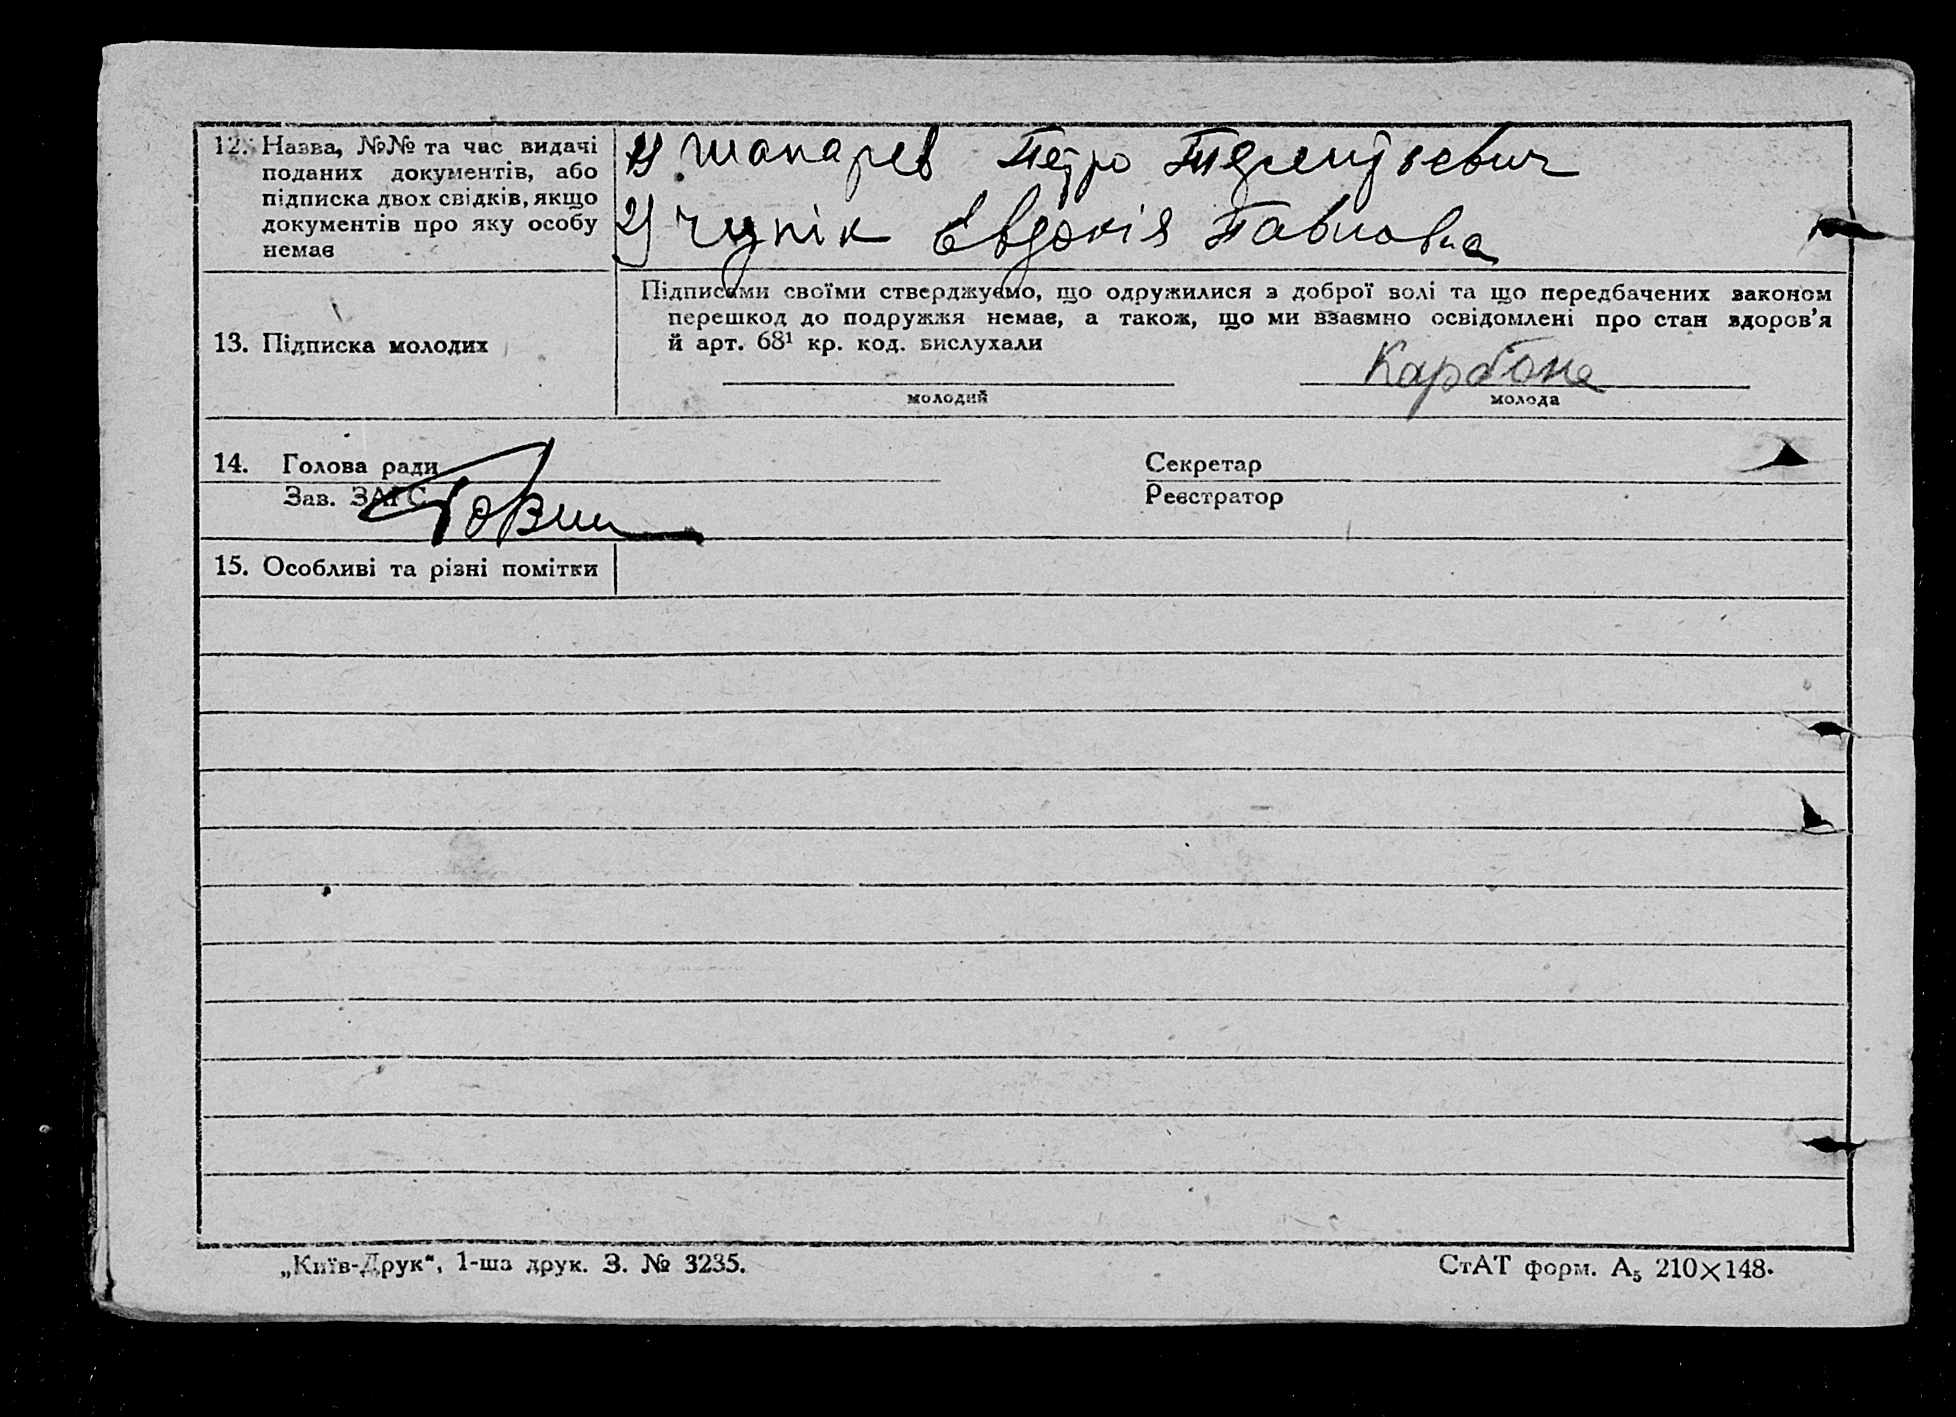 12. Назва, №№ та час видачі
поданих документів, або
підписка двох свідків, якщо
документів про яку особу
немає
1) Шапарев Петро
2) Чупік Євдокія Павловна
13. Підписка молодих
Підписами своїми стверджуємо, що одружилися з доброї волі та що передбачених законом
перешкод до подружжя немає, а також, що ми взаємно освідомлені про стан здоров'я
й арт. 68¹ кр. код. вислухали
молодий
молода
14. Голова ради
Зав. ЗАГС
Секретар
Реєстратор
15. Особливі та різні помітки
„Київ-Друк“, 1-ша друк. З. № 3235.
СтАТ форм. А₅ 210×148.